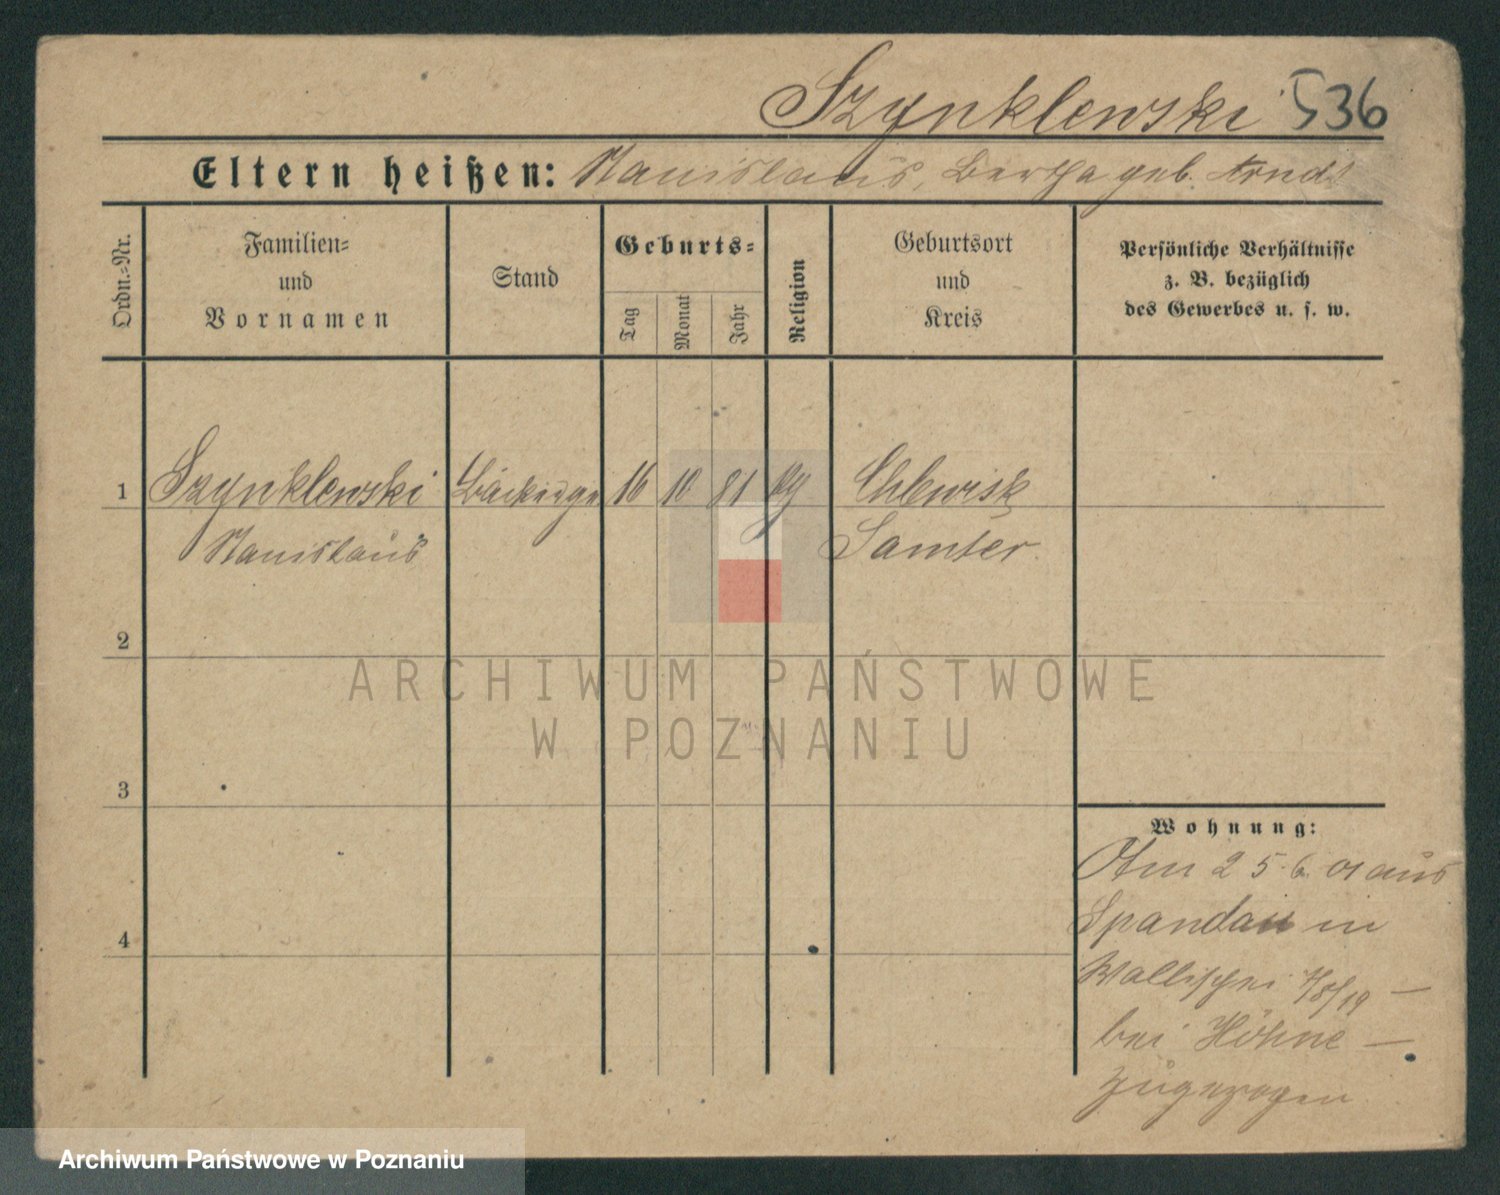 Szynklewski 536
Eltern heißen: Stanislaus, Bertha geb. Arndt
Ordn.=Nr.
Familien=
und
Vornamen
Stand
Geburts=
Tag
Monat
Jahr
Religion
Geburtsort
und
Kreis
Persönliche Verhältnisse
z. B. bezüglich
des Gewerbes u. s. w.
1 Szynklewski 16 10 81 Chlewisk
Stanislaus Samter
2
3
4
Wohnung:
Am 25.6.01 aus
Spandau in
Wallischei
bei Höhne —
zugezogen
ARCHIWUM PAŃSTWOWE
W POZNANIU
Archiwum Państwowe w Poznaniu